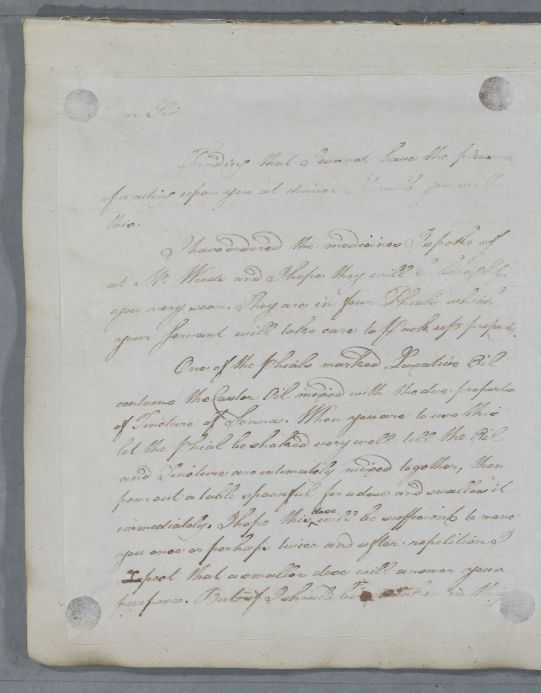 ear Sir
Finding that I cannot have the pleasure
of waiting upon you at dinner I trouble you with
this.
I have ordered the medicines I spoke of
at Mr. Woods and I hope they will be brought
you very soon. They are in four Phials which
your Servant will take care to pack up properly.
One of the Phials marked Laxative Oil
contains the Castor Oil mixed with the due proportion
of Tincture of Senna. When you are to use this
let the Phial be shaked very well till the Oil
and Tincture are intimately mixed together, then
pour out a table spoonful for a dose and swallow it
immediately. I hope this dose will be sufficient to move
you once or perhaps twice and after repetition I
expect that a smaller dose will answer your
purpose. But if I should be mistaken in this